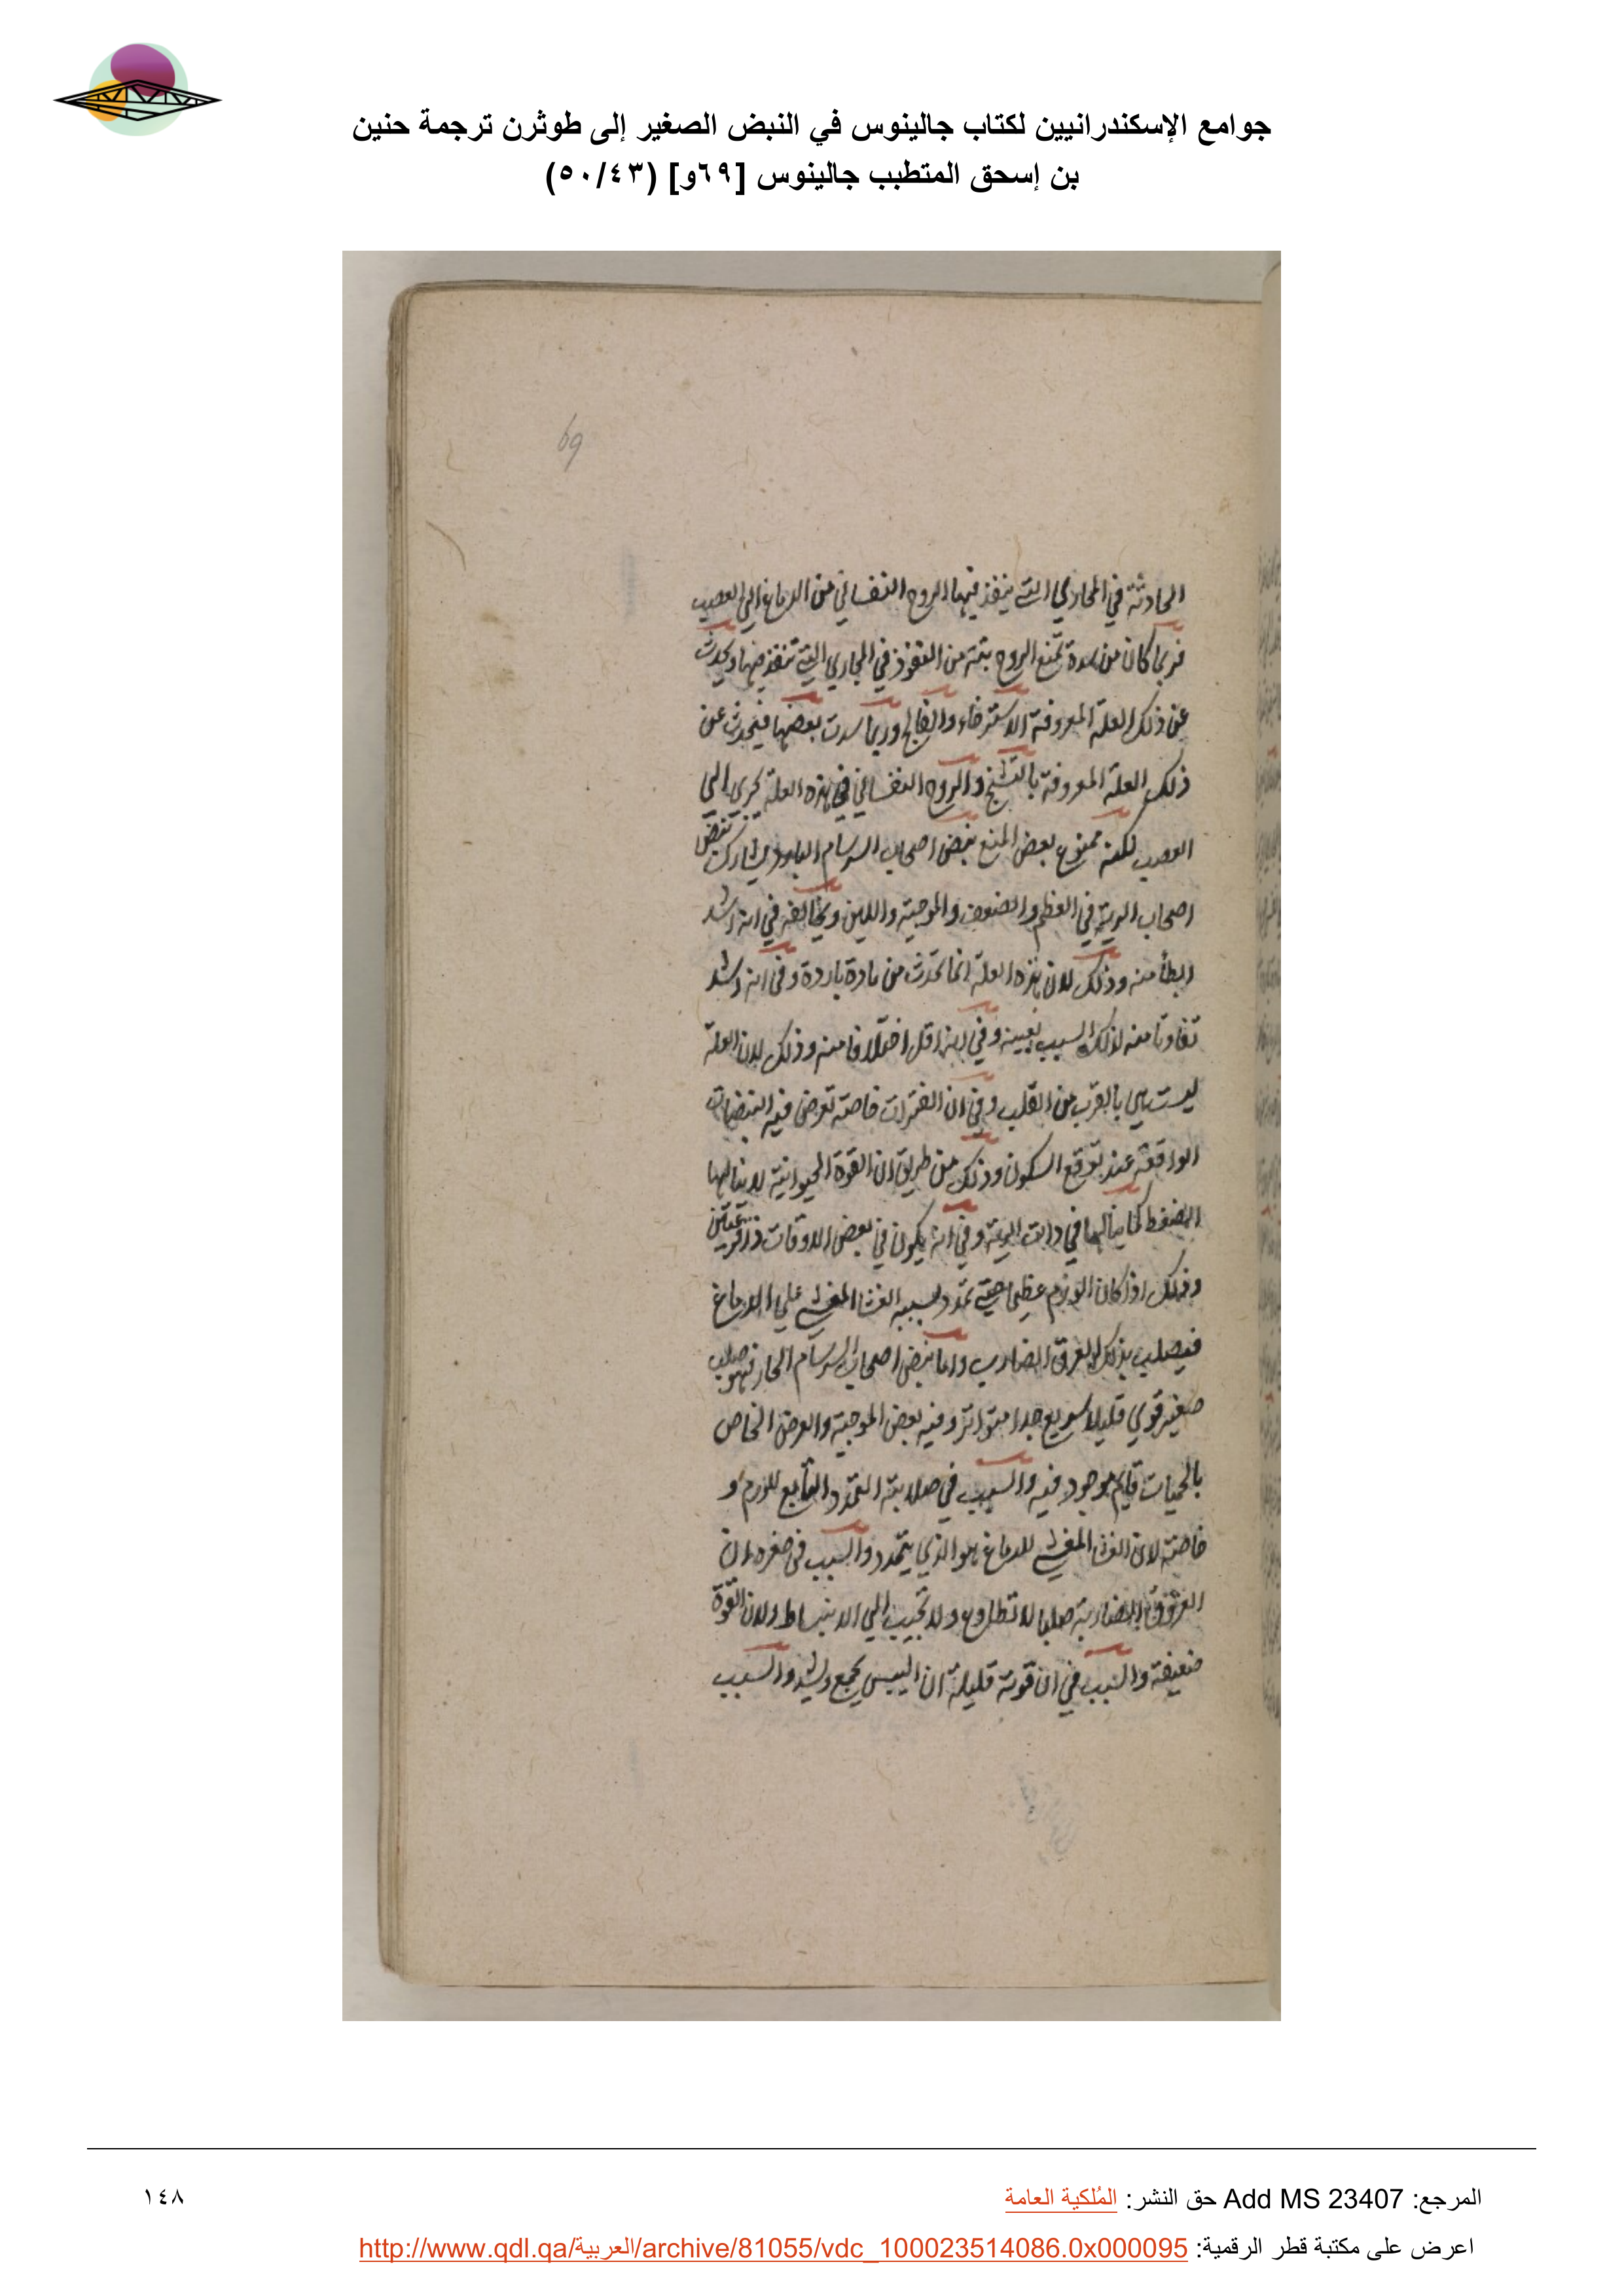 جوامع الإسكندرانيين لكتاب جالينوس في النبض الصغير إلى طوثرن ترجمة حنين
بن إسحق المتطبب جالينوس [٦٩و] (٥٠/٤٣)
69
الحادثة في المجاري التي ينفذ فيها الروح النفساني من الدماغ الي العصب
فربما كان من سدة تمنع الروح بتة من النفوذ في المجاري التي تنفذ فيها ويحدث
عن ذلك العلة المعروفة الاسترخاء والفالج وربما سدت بعضها فيحدث عن
ذلك العلة المعروفة بالتشنج والروح النفساني في هذه العلة يجري الي
العصب لكنه ممنوع بعض المنع نبض اصحاب السرسام البارد يشارك نبض
اصحاب الرية في العظم والضعف والموجية واللين ويخالفه في انه اشد
ابطأ منه وذلك لان هذه العلة انما تحدث من مادة باردة وفي انه اشد
تفاوتا منه لذلك السبب بعينه وفي انه اقل اختلافا منه وذلك لان العلة
ليست هي بالقرب من القلب وفي ان الفترات خاصة تعرض فيه النبضات
الواقعة عند توقع السكون وذلك من طريق ان القوة الحيوانية لا ينالها
الضغط كما ينالها في ذات الرية وفي انه يكون في بعض الاوقات ذا قرعتين
وذلك اذا كان الورم عظيما حتي تمدد بسببه الغشا المغشي علي الدماغ
فيصلب بذلك العرق الضارب واما نبض اصحاب السرسام الحار فهو صلب
صغير قوي قليلا سريع جدا متواتر وفيه بعض الموجية والعرض الخاص
بالحميات قايم موجود فيه والسبب في صلابته التمدد التابع للورم و
خاصة لان الغشا المغشي للدماغ هو الذي يتمدد والسبب في صغره ان
العروق الضاربة صلبا لا تطاوع ولا تجيب الي الانبساط ولان القوة
ضعيفة والسبب في ان قوته قليلة ان اليبس يجمع ويشد والسبب
المرجع: Add MS 23407 حق النشر: المُلكية العامة
١٤٨
اعرض على مكتبة قطر الرقمية: http://www.qdl.qa/العربية/archive/81055/vdc_100023514086.0x000095